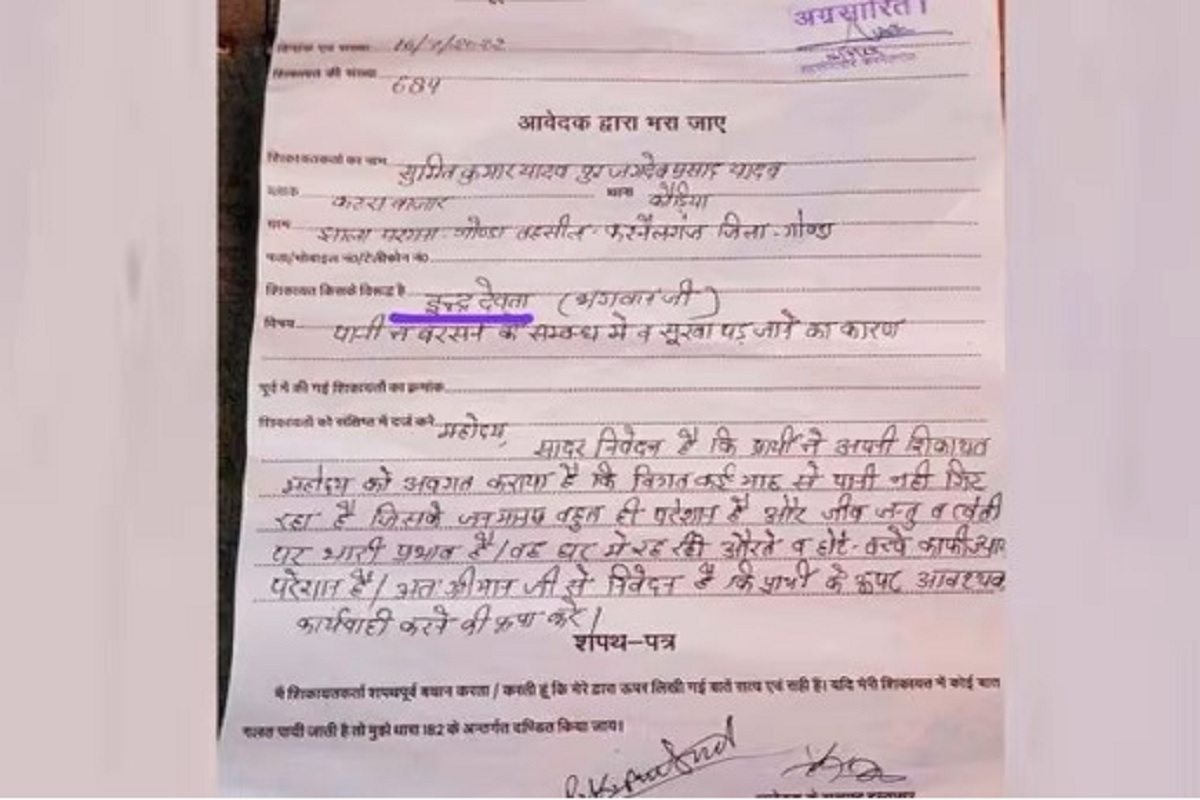 अग्रसारित।
दिनांक एवं संख्या 16/7/2022
शिकायत की संख्या 684
आवेदक द्वारा भरा जाए
शिकायतकर्ता का नाम सुमित कुमार यादव पुत्र जगदेव प्रसाद यादव
ब्लाक कटरा बाजार थाना कौडिया
ग्राम झाला परगना गोण्डा तहसील करनैलगंज जिला-गोण्डा
पता/मोबाइल नं0/टेलीफोन नं0
शिकायत किसके विरूद्ध है इन्द्र देवता (भगवान जी)
विषय पानी न बरसने के सम्बन्ध में व सूखा पड़ जाने का कारण
पूर्व में की गई शिकायतों का क्रमांक
शिकायतों को संक्षिप्त में दर्ज करे महोदय,
सादर निवेदन है कि प्रार्थी ने अपनी शिकायत
महोदय को अवगत कराया है कि विगत कई माह से पानी नही गिर
रहा है जिसके जनमानष बहुत ही परेशान है और जीव जन्तु व खेती
पर भारी प्रभाव है/वह घर में रह रही औरते व छोटे-बच्चे काफी
परेशान है/अतः श्रीमान जी से निवेदन है कि प्रार्थी के ऊपर आवश्यक
कार्यवाही करने की कृपा करे/
शपथ-पत्र
मैं शिकायतकर्ता शपथपूर्व बयान करता / करती हूं कि मेरे द्वारा ऊपर लिखी गई बातें सत्य एवं सही है। यदि मेरी शिकायत में कोई बात
गलत पायी जाती है तो मुझे धारा 182 के अन्तर्गत दण्डित किया जाय।